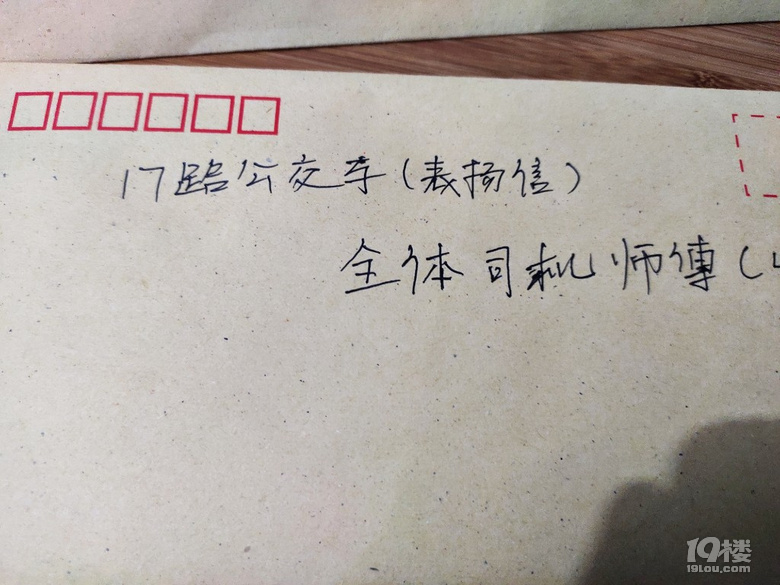 17路公交车(表扬信)
全体司机师傅(
19楼
19lou.com